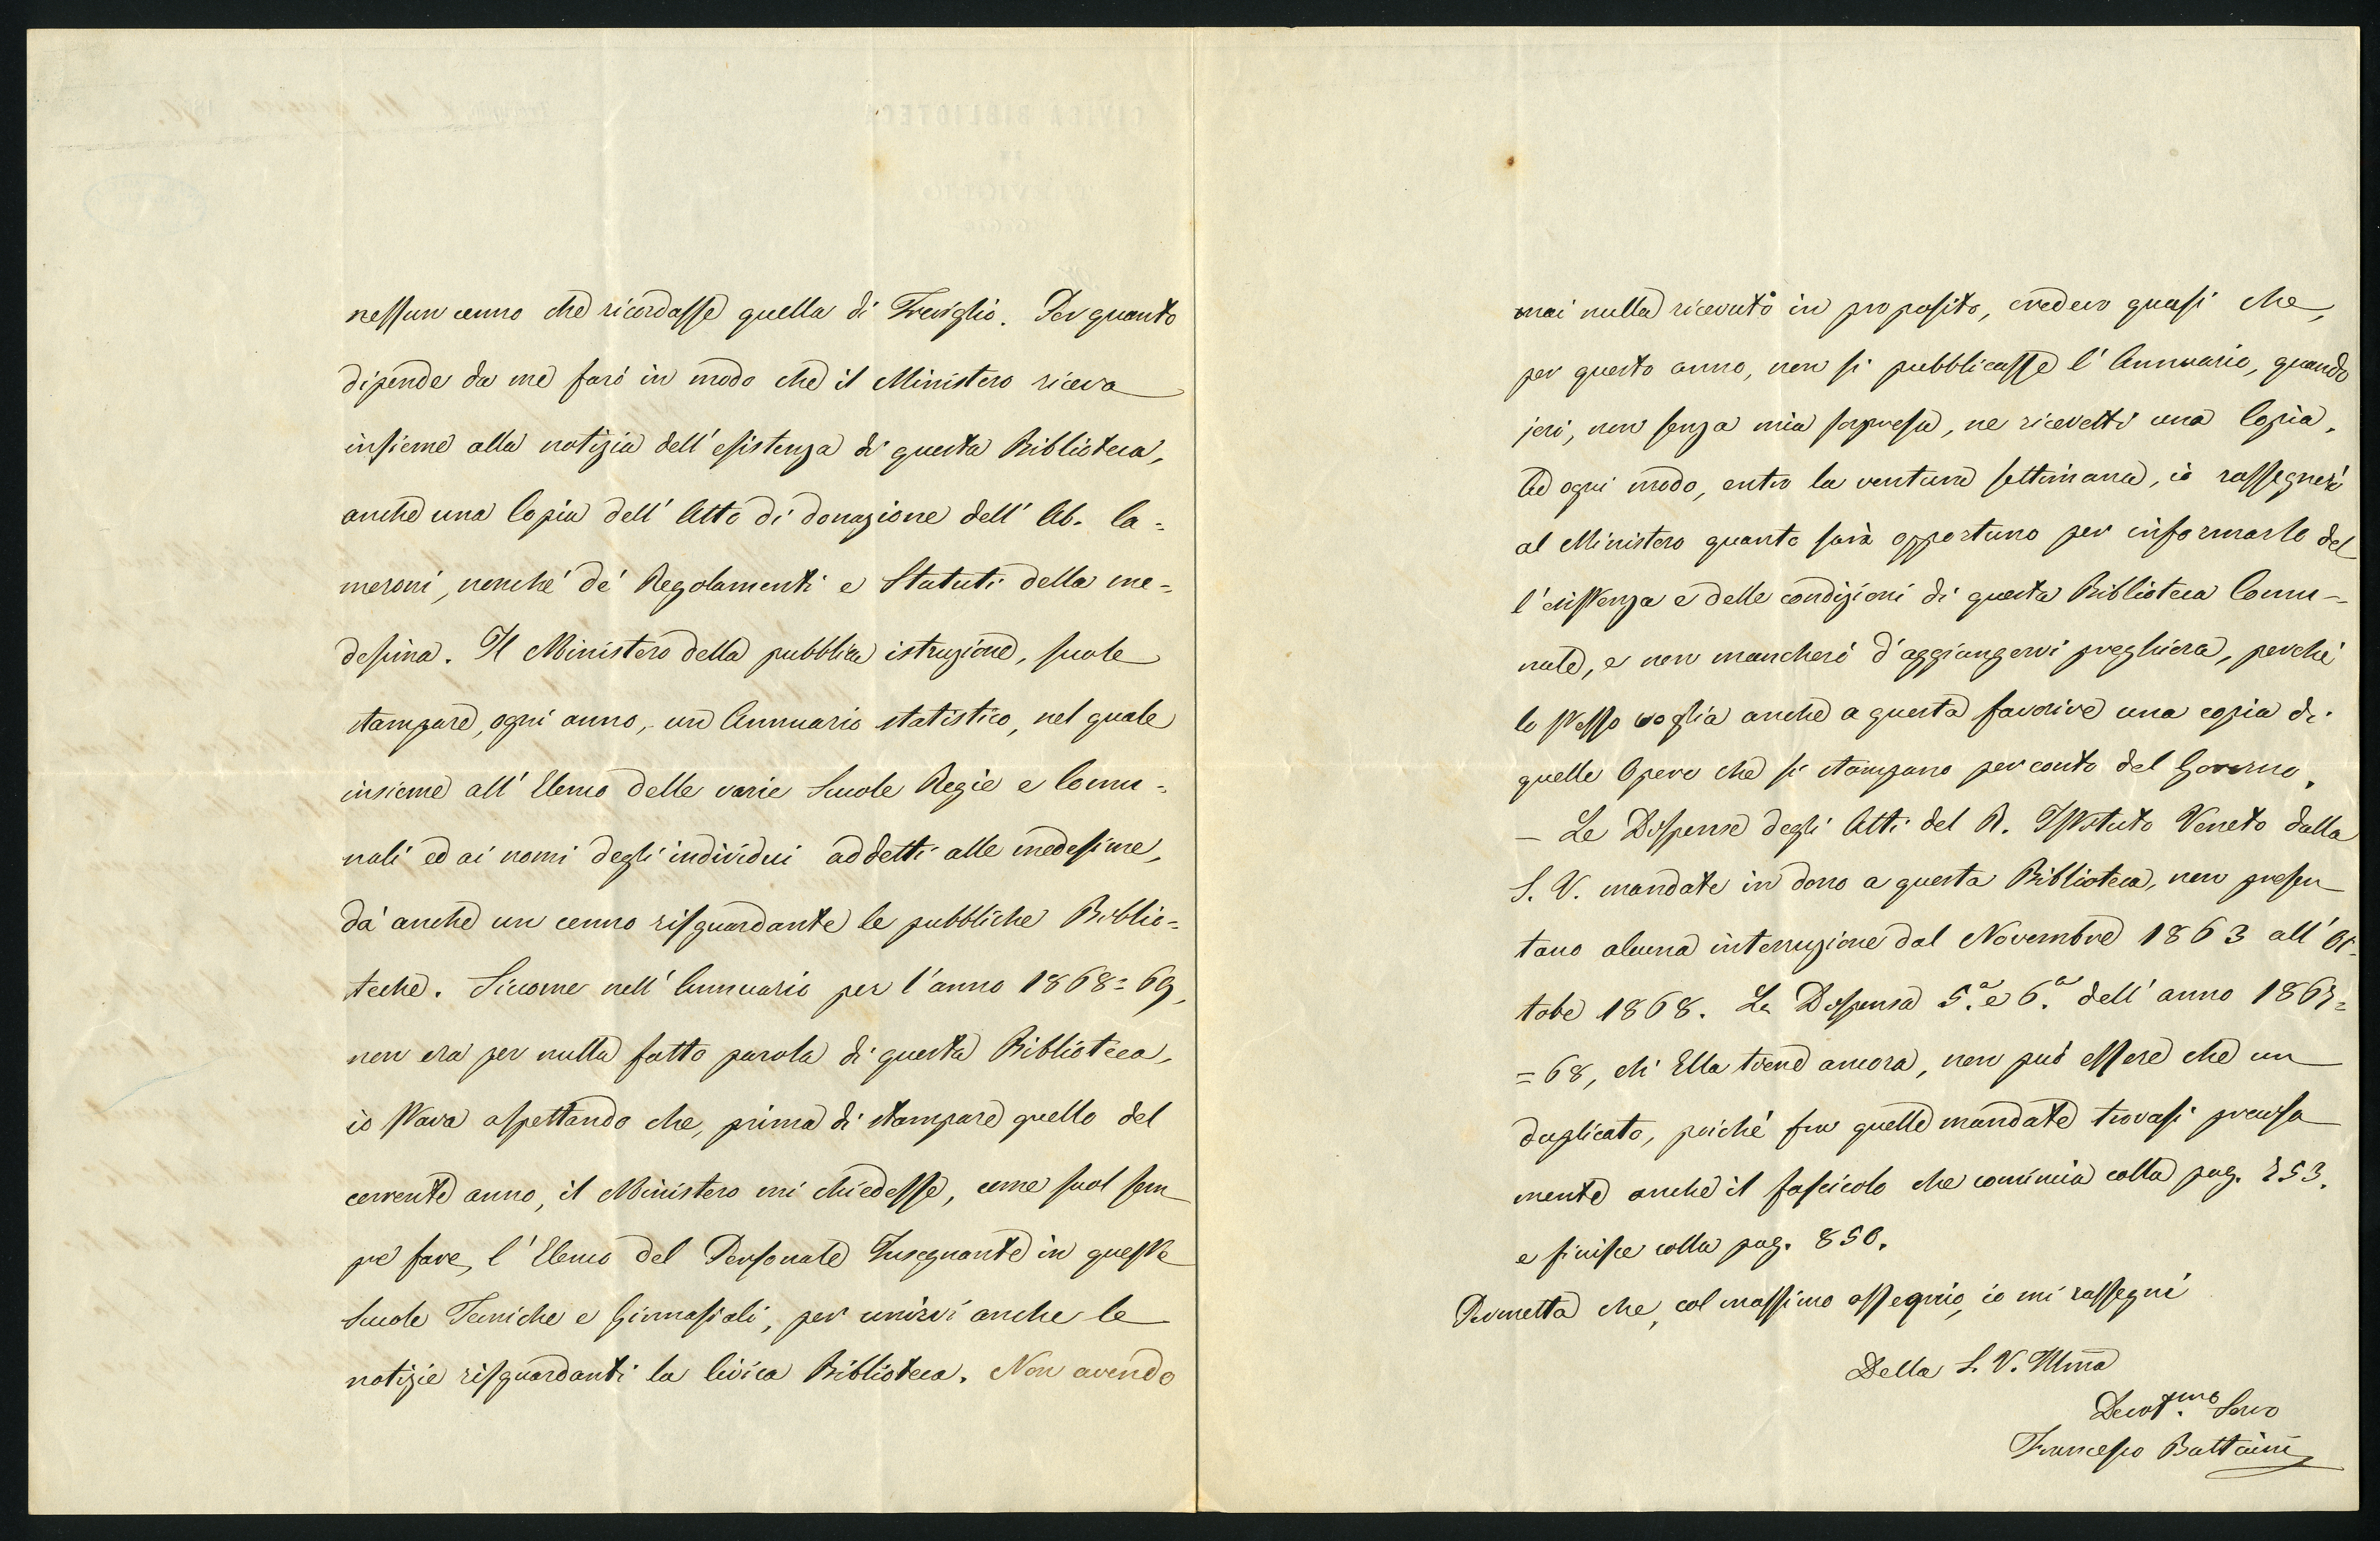 nessun cenno che ricordasse quella di Treviglio. Per quanto
dipende da me farò in modo che il Ministero riceva
insieme alla notizia dell'esistenza di questa Biblioteca,
anche una Copia dell'Atto di donazione dell'Ab. Ca=
meroni, nonché de' Regolamenti e Statuti della me=
desima. Il Ministero della pubblica istruzione, suole
stampare, ogni anno, un Annuario statistico, nel quale
insieme all'Elenco delle varie Scuole Regie e Comu=
nali ed ai nomi degli individui addetti alle medesime,
dà anche un cenno risguardante le pubbliche Biblio=
teche. Siccome nell'Annuario per l'anno 1868=69,
non era per nulla fatto parola di questa Biblioteca,
io stava aspettando che, prima di stampare quello del
corrente anno, il Ministero mi chiedesse, come suol sem
pre fare, l'Elenco del Personale Insegnante in queste
Scuole Tecniche e Ginnasiali, per unirvi anche le
notizie risguardanti la Civica Biblioteca. Non avendo
mai nulla ricevuto in proposito, credevo quasi che,
per questo anno, non si pubblicasse l'Annuario, quando
jeri, non senza mia sorpresa, ne ricevetti una Copia.
Ad ogni modo, entro la ventura settimana, io rassegnerò
al Ministero quanto sarà opportuno per informarlo del
l'esistenza e delle condizioni di questa Biblioteca Comu-
nale, e non mancherò d'aggiungervi preghiera, perché
lo stesso voglia anche a questa favorire una copia di
quelle Opere che si stampano per conto del Governo.
— Le Dispense degli Atti del R. Istituto Veneto dalla
S. V. mandate in dono a questa Biblioteca, non presen
tano alcuna interruzione dal Novembre 1863 all'Ot-
tobe 1868. La Dispensa 5.ª e 6.ª dell'anno 1867=
=68, ch'Ella tiene ancora, non può essere che un
duplicato, poiché fra quelle mandate trovasi precisa
mente anche il fascicolo che comincia colla pag. 753.
e finisce colla pag. 850.
Permetta che, col massimo ossequio, io mi rassegni
Della S. V. Illma
Devot.mo Servo
Francesco Battaini